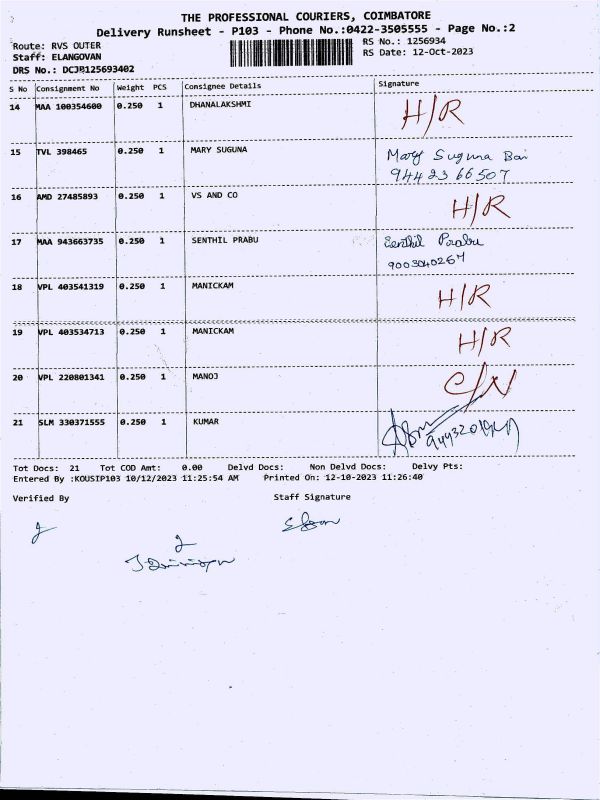 THE PROFESSIONAL COURIERS, COIMBATORE
Delivery Runsheet - P103 - Phone No.:0422-3505555 - Page No.:2
Route: RVS OUTER
RS No.: 1256934
Staff: ELANGOVAN
RS Date: 12-Oct-2023
DRS No.: DCJB125693402
S No Consignment No Weight PCS Consignee Details Signature
14 MAA 100354600 0.250 1 DHANALAKSHMI H/R
15 TVL 398465 0.250 1 MARY SUGUNA Mary Suguna Bai
9442366507
16 AMD 27485893 0.250 1 VS AND CO H/R
17 MAA 943663735 0.250 1 SENTHIL PRABU Senthil Prabu
9003040267
18 VPL 403541319 0.250 1 MANICKAM H/R
19 VPL 403534713 0.250 1 MANICKAM H/R
20 VPL 220801341 0.250 1 MANOJ C/N
21 SLM 330371555 0.250 1 KUMAR
Tot Docs: 21 Tot COD Amt: 0.00 Delvd Docs: Non Delvd Docs: Delvy Pts:
Entered By :KOUSIP103 10/12/2023 11:25:54 AM Printed On: 12-10-2023 11:26:40
Verified By Staff Signature